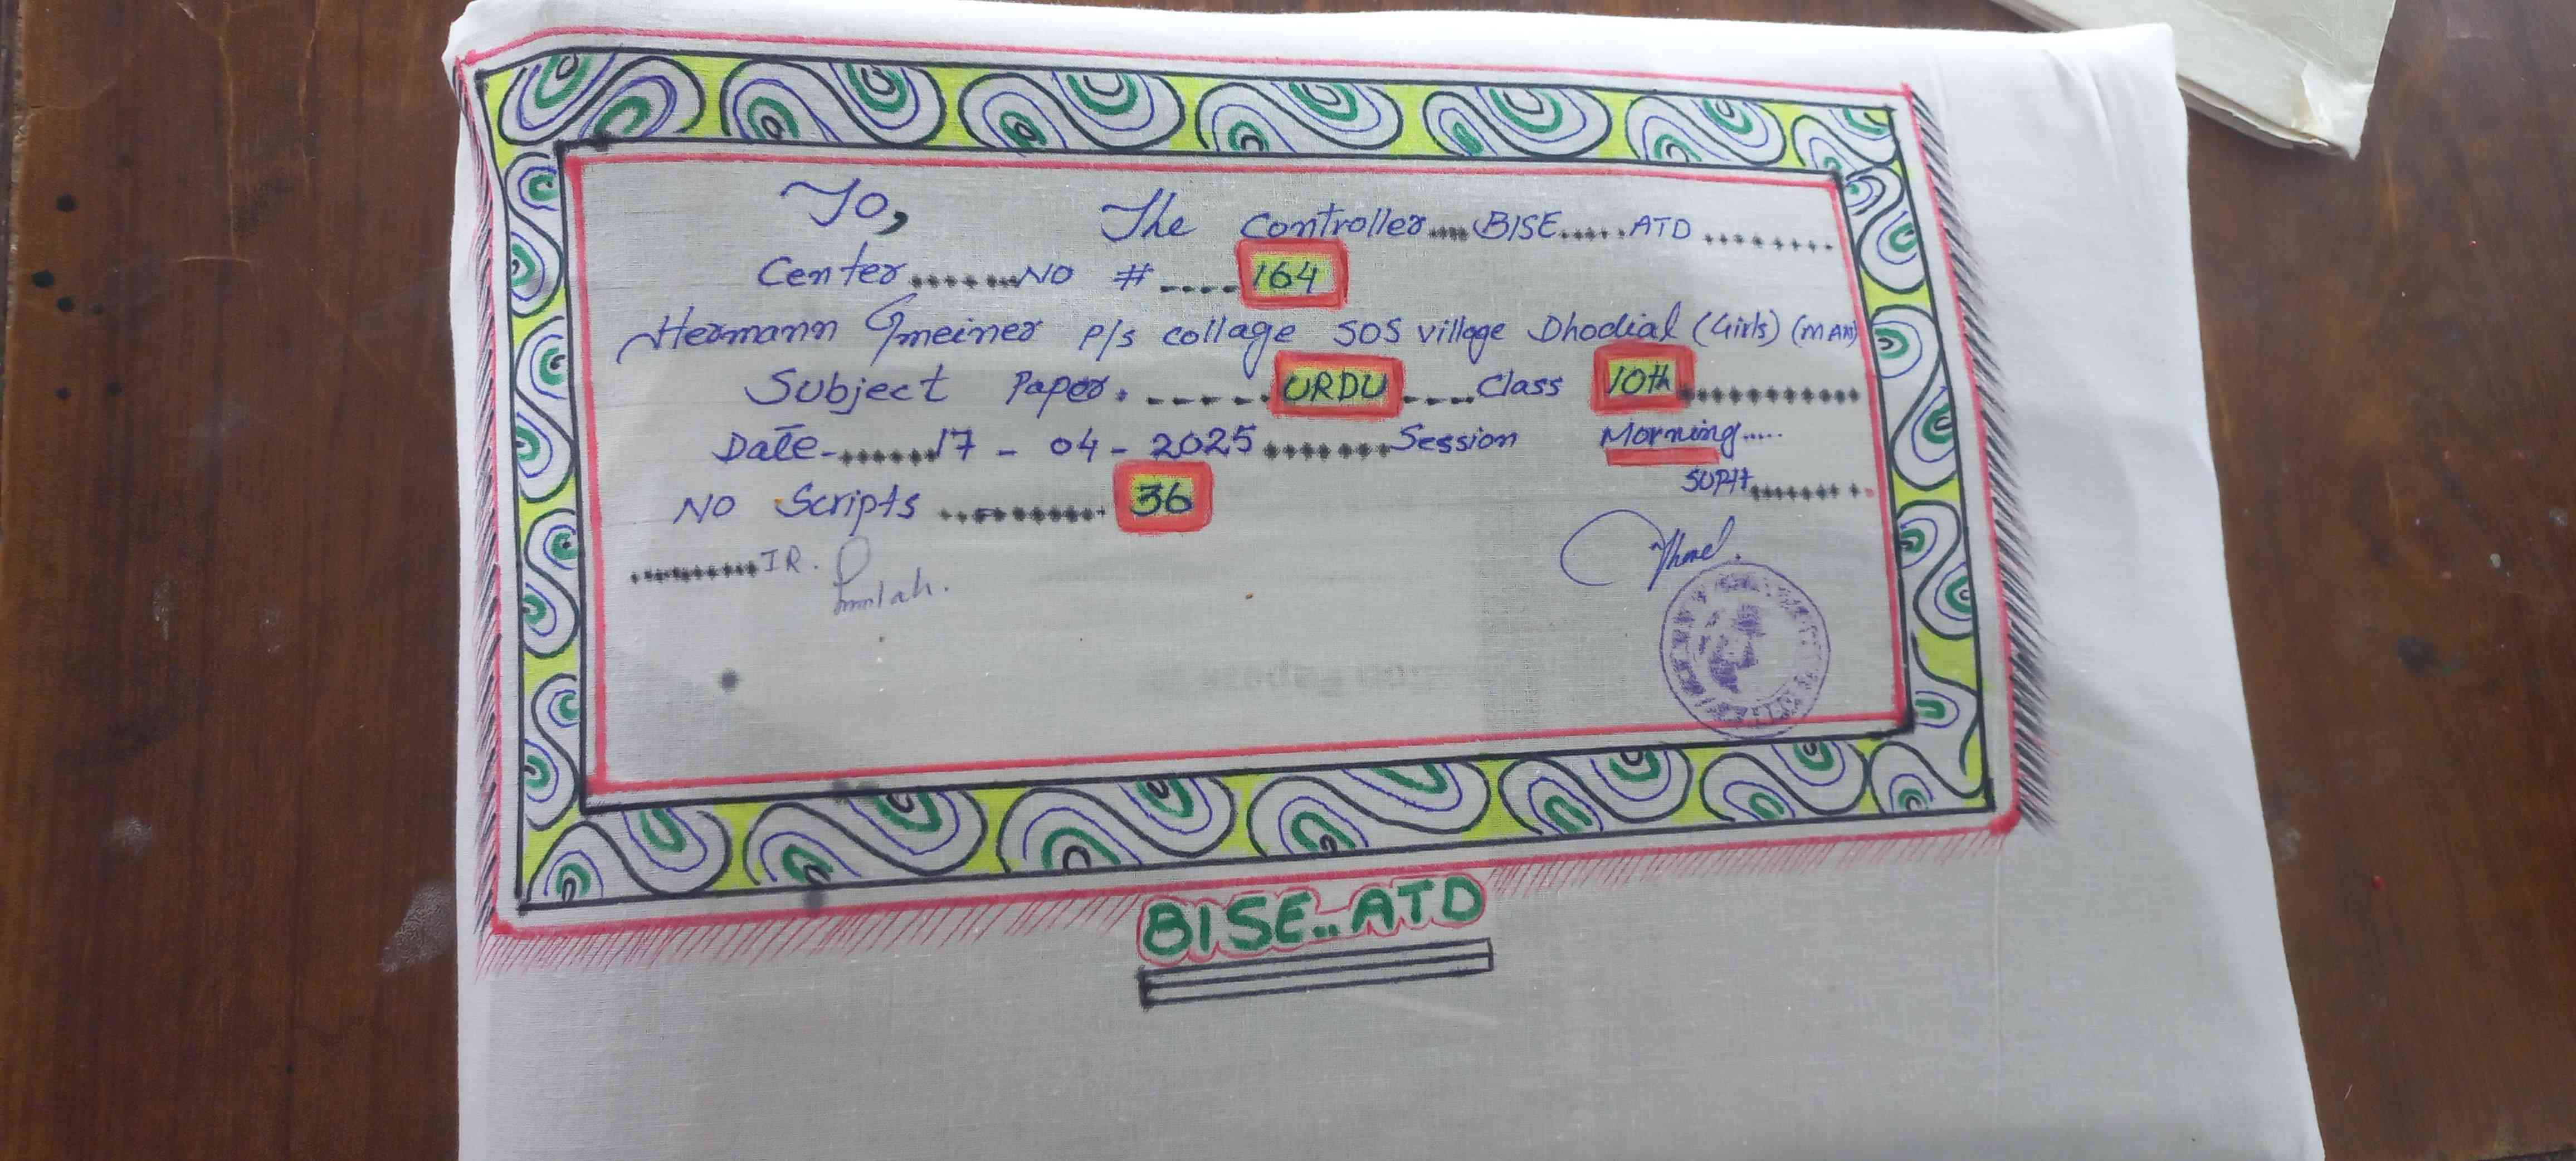 To,
The Controller.... BISE..... ATD ........
Center.......NO # ....164
Hermann Gmeiner P/S collage SOS village Dhodial (Girls) (MAN)
Subject Paper. -----URDU ....Class 10th...........
Date-......17 - 04 - 2025.......Session Morning.....
SUPtt........
NO Scripts .......... 36
.........IR.
BISE..ATD